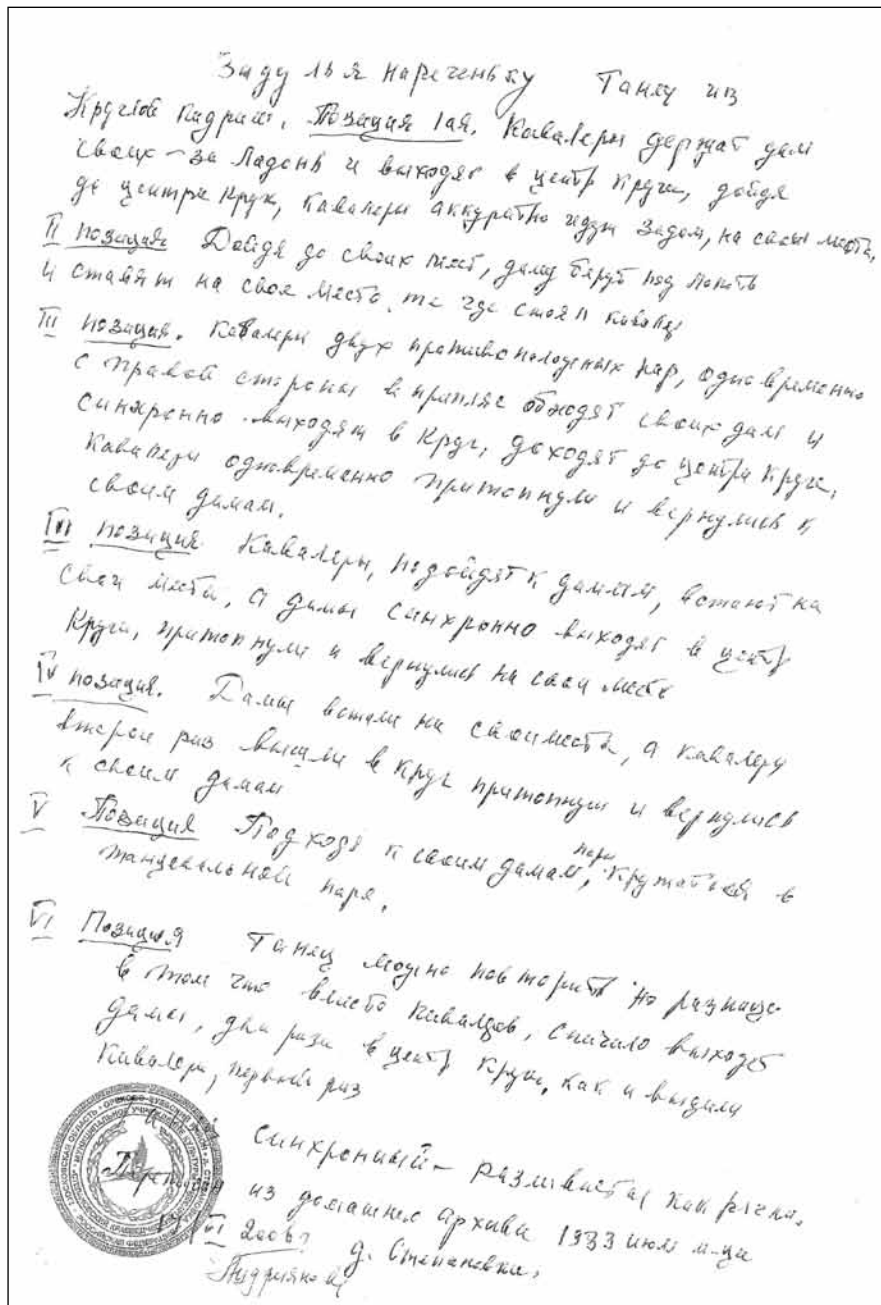 Зайду ль я на реченьку Танец из
Круглой кадрили. Позиция 1ая. Кавалеры держат дам
своих - за ладонь и выходят в центр круга, дойдя
до центра круга, кавалеры аккуратно идут задом, на свои места,
II позиция Дойдя до своих мест, даму берут под локоть
и ставят на свое место, те где стоял кавалер
III позиция. Кавалеры двух противоположных пар, одновременно
с правой стороны вприпляс обходят своих дам и
синхронно выходят в круг, доходят до центра круга,
кавалеры одновременно притопнули и вернулись к
своим дамам.
позиция Кавалеры, подойдят к дамам, встают на
свои места, а дамы синхронно выходят в центр
круга, притопнули и вернулись на свои места
IV позиция. Дамы встали на свои места, а кавалеры
второй раз вышли в круг притопнули и вернулись
к своим дамам
V Позиция Подходя к своим дамам, пары кружатся в
танцевальной паре.
VI Позиция Танец можно повторить но разница
в том что вместо кавалеров, сначало выходят
дамы, два раза в центр круга, как и выходили
кавалеры, первый раз
синхронный - разливистый как речка.
из домашнего архива 1933 июль м-ца
2006 г д. Степановка.
Андриянова